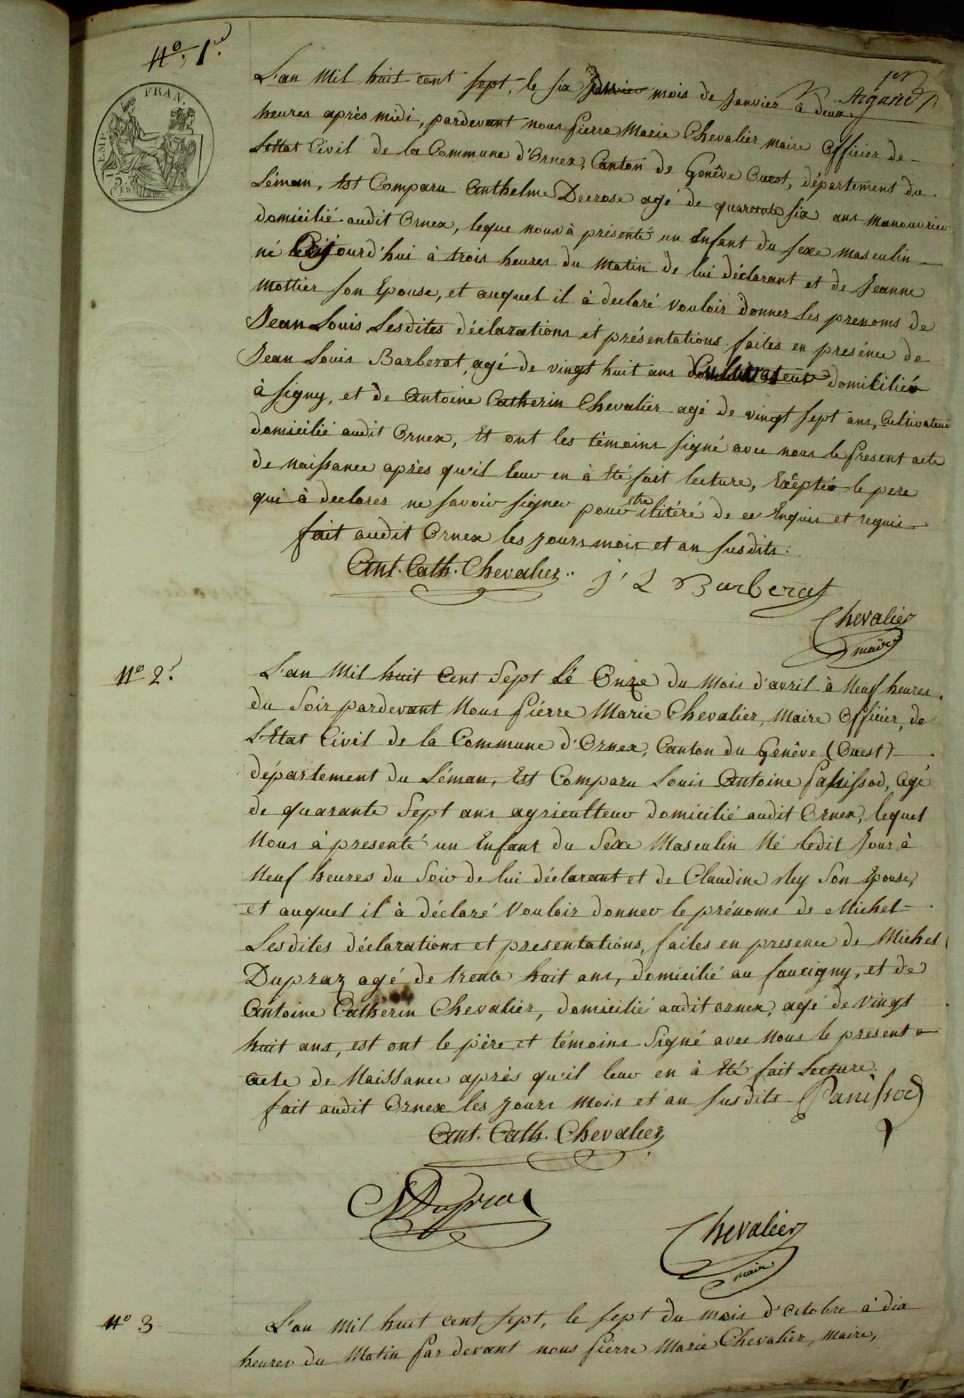 N.° 1.er
FRAN.
L'an Mil huit cent sept, le six mois de Janvier à deux
heures après midi, pardevant nous Pierre Marie Chevalier maire officier de
L'Etat Civil de la Commune d'Ornex, Canton de Genêve Ouest, départem̃ent du
Léman, Est Comparu Anthelme Decrose agé de quarente six ans manouvrier
domicilié audit Ornex, leque nous à présenté un Enfant du sexe masculin
né Cejourd'hui à trois heures du Matin de lui déclarant et de Jeanne
Mottier son Epouse, et auquel il à declaré vouloir donner les prenoms de
Jean Louis Lesdites déclarations et présentations faites en presénce de
Jean Louis Barberat, agé de vingt huit ans Cultivateur domicilié
à Signy, et de Antoine Catherin Chevalier agé de vingt sept ans, Cultivateur
domicilié audit Ornex, Et ont les témoins signé avec nous le present acte
de naissance après qu'il leur en à Eté fait lecture, Excéptée le pere
qui à declarer ne savoir signer pour être ilitéré de ce Enquis et requis
fait audit Ornex les jours mois et an susdits.
Ant. Cath. Chevalier. j L Barberat
Chevalier
maire
N.° 2.
L'an Mil huit Cent Sept Lé Onze du Mois d'avril à Neuf heures
du Soir pardevant Nous Piérre Marie Chevalier, Maire Officier, de
L'Etat Civil de la Commune d'Ornex, Canton du Genêve (Ouest)
département du Léman, Est Comparu Louis Antoine Panissod, agé
de quarante Sept ans agriculteur domicilié audit Ornex, lequel
Nous à presenté un Enfant du Sexe Masculin Né ledit Jour à
Neuf heures du Soir de lui déclarant et de Claudine Ney Son Epouse,
et auquel il à déclaré Vouloir donner le prénoms de Michel
Lesdites déclarations et presentations, faites en presence de Michel
Dupraz agé de trente huit ans, domicilié au faucigny, et de
Antoine Catherin Chevalier, domicilié audit ornex, agé de Vingt
huit ans, est ont le père et témoins Signé avec Nous le present
acte de Naissance après qu'il leur en à Eté fait Lecture.
fait audit Ornex les Jours Mois et an susdits Panissod
Ant. Cath. Chevalier
M Dupraz
Chevalier
maire
N.° 3
L'an Mil huit cent sept, le sept du mois d'octobre à dix
heures du Matin Par devant nous Pierre Marie Chevalier, maire,